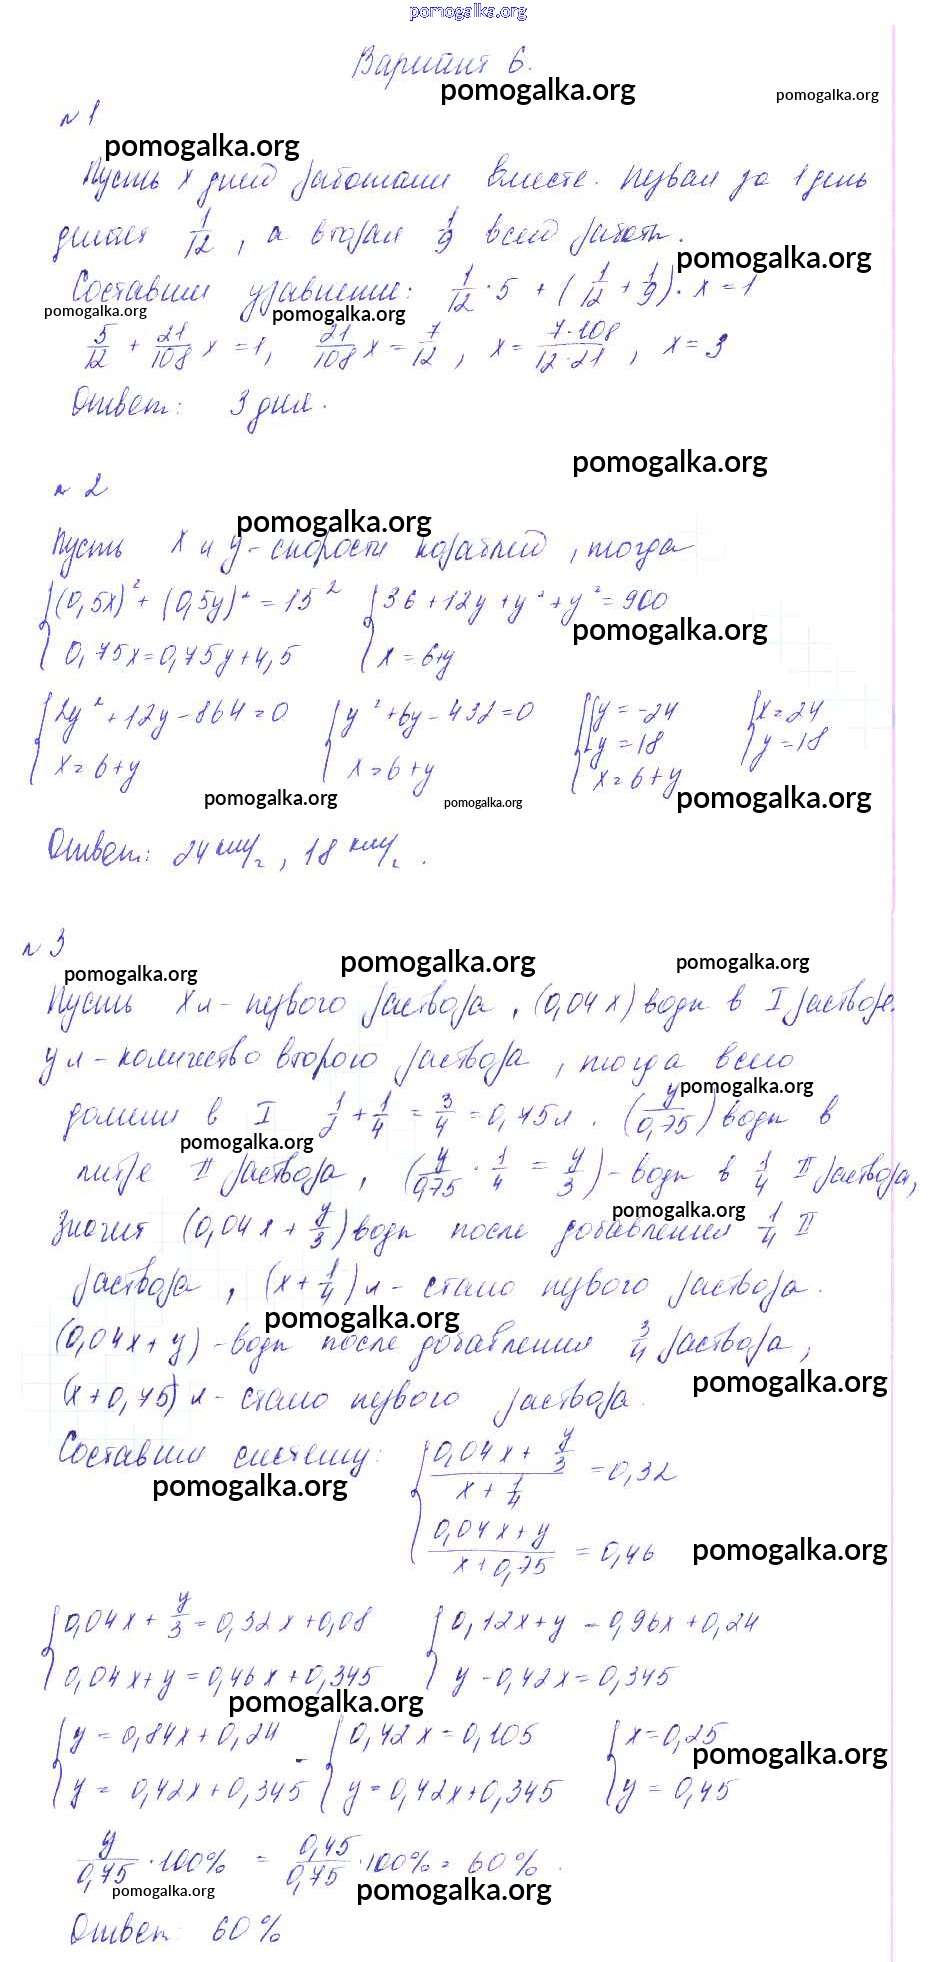 pomogalka.org
Вариант 6.
pomogalka.org pomogalka.org
№ 1
pomogalka.org
Пусть x дней работали вместе. Первая за 1 день
делает 1/12, а вторая 1/9 всей работы.
pomogalka.org
Составим уравнение: 1/12 · 5 + (1/12 + 1/9) · x = 1
pomogalka.org pomogalka.org
5/12 + 21/108 x = 1, 21/108 x = 7/12, x = 7·108/12·21, x = 3
Ответ: 3 дня.
pomogalka.org
№ 2
pomogalka.org
Пусть x и y - скорости кораблей, тогда
{(0,5x)² + (0,5y)² = 15² {36 + 12y + y² + y² = 900
pomogalka.org
0,75x = 0,75y + 4,5 x = 6+y
{2y² + 12y - 864 = 0 {y² + 6y - 432 = 0 {[y = -24 {x = 24
x = 6 + y x = 6 + y y = 18 y = 18
x = 6 + y
pomogalka.org pomogalka.org pomogalka.org
Ответ: 24 км/г, 18 км/г.
№ 3
pomogalka.org pomogalka.org pomogalka.org
Пусть x л - первого раствора, (0,04x) воды в I растворе.
y л - количество второго раствора, тогда всего
pomogalka.org
долили в I 1/2 + 1/4 = 3/4 = 0,75 л. (y/0,75) воды в
pomogalka.org
литре II раствора, (y/0,75 · 1/4 = y/3) - воды в 1/4 II раствора,
pomogalka.org
Значит (0,04x + y/3) воды после добавления 1/4 II
раствора, (x + 1/4) л - стало первого раствора.
pomogalka.org
(0,04x + y) - воды после добавления 3/4 раствора,
pomogalka.org
(x + 0,75) л - стало первого раствора.
Составим систему: {0,04x + y/3 / x + 1/4 = 0,32
pomogalka.org
0,04x + y / x + 0,75 = 0,46
pomogalka.org
{0,04x + y/3 = 0,32x + 0,08 {0,12x + y = 0,96x + 0,24
0,04x + y = 0,46x + 0,345 y - 0,42x = 0,345
pomogalka.org
{y = 0,84x + 0,24 - {0,42x = 0,105 {x = 0,25
pomogalka.org
y = 0,42x + 0,345 y = 0,42x + 0,345 y = 0,45
y/0,75 · 100% = 0,45/0,75 · 100% = 60%.
pomogalka.org pomogalka.org
Ответ: 60%